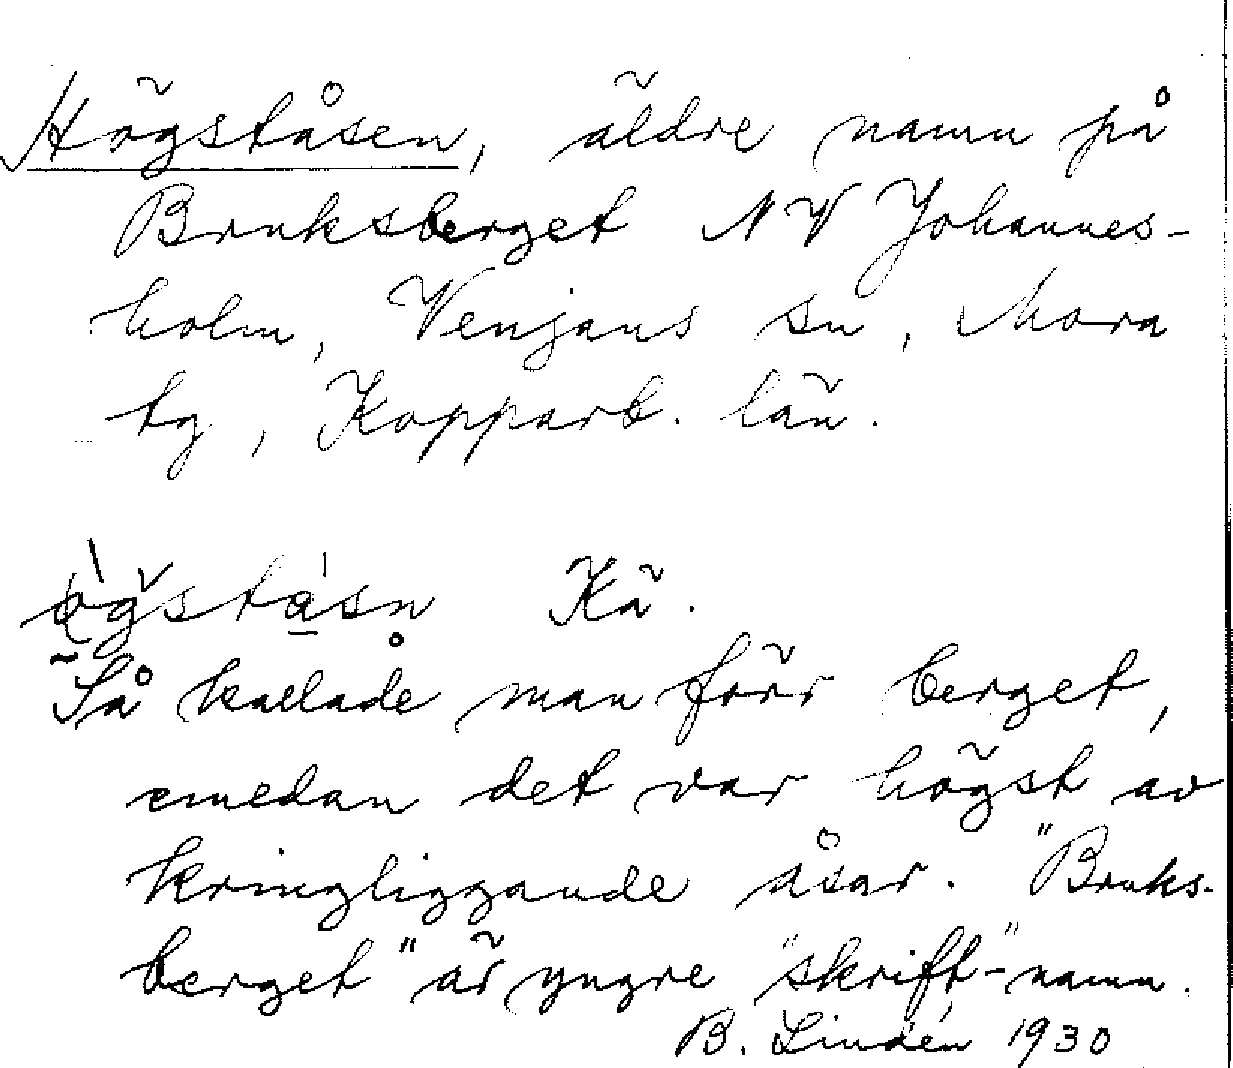 Högståsen, äldre namn på
Bruksberget NV Johannes-
holm, Venjans sn, Mora
tg, Kopparb. län.
Kä.
Så kallade man förr berget,
emedan det var högst av
kringliggande åsar. "Bruks-
berget" är yngre "skrift-"namn.
B. Lindén 1930